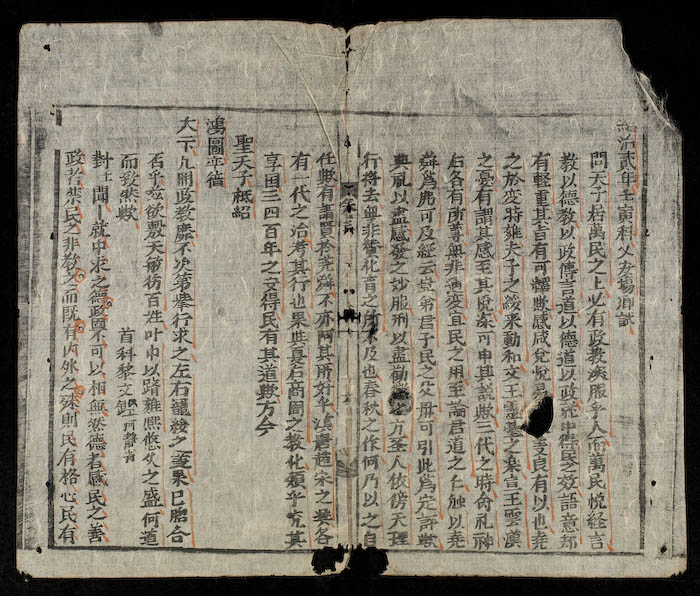 治貳年壬寅科乂安場鄉試
問天子居萬民之上必有政教浹服乎人而萬民悅經言
教以德教以政傳言道以德道以政就中得民之效語意却
有輕重其旨有可繹歟感戚兌悅受良有以也堯
之於變時雍夫子之綏來動和文王靈臺之樂宣王雲漢
之憂有謂其感至其悅深可申其說歟三代之時命祀神
右各有所尊無非通變宜民之用至論君道之仁獨以堯
舜爲弗可及經云豈弟君子民之父母可引此爲定評歟
典風以盡感發之妙服刑以盡勸方至人依傍天理
行將去無非賛化育之所不及也春秋之作何乃以之自
任歟有謂賢於堯舜不亦阿其所好乎漢唐趙宋之興各
有一代之治考其行也果與夏后商周之教化類乎究其
享國三四百年之久得民有其道歟方今
聖天子祗紹
鴻圖
大一下凡開政教靡不次第舉行求之左右輔綏之宜果已胎合
否乎茲欲敷天
而致然歟
首科黎文
對士聞就中求之德政固不可以相無然德者感民之善
政者禁民之非教之而既有內外之殊則民有格心民有